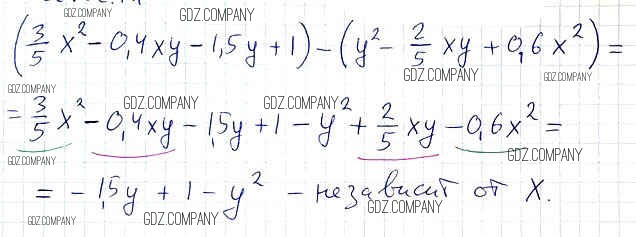 GDZ.COMPANY GDZ.COMPANY
(3/5 x² - 0,4xy - 1,5y + 1) - (y² - 2/5 xy + 0,6x²) =
GDZ.COMPANY GDZ.COMPANY
GDZ.COMPANY GDZ.COMPANY GDZ.COMPANY
= 3/5 x² - 0,4xy - 1,5y + 1 - y² + 2/5 xy - 0,6x² =
GDZ.COMPANY GDZ.COMPANY
= - 1,5y + 1 - y² - независит от X.
GDZ.COMPANY GDZ.COMPANY GDZ.COMPANY